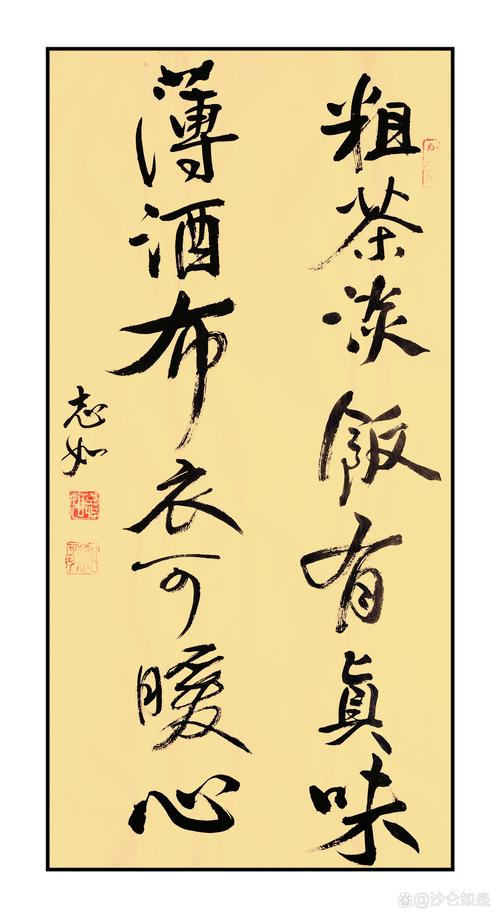 粗茶淡飯有真味
薄酒布衣可暖心
志如
@沙仑如是